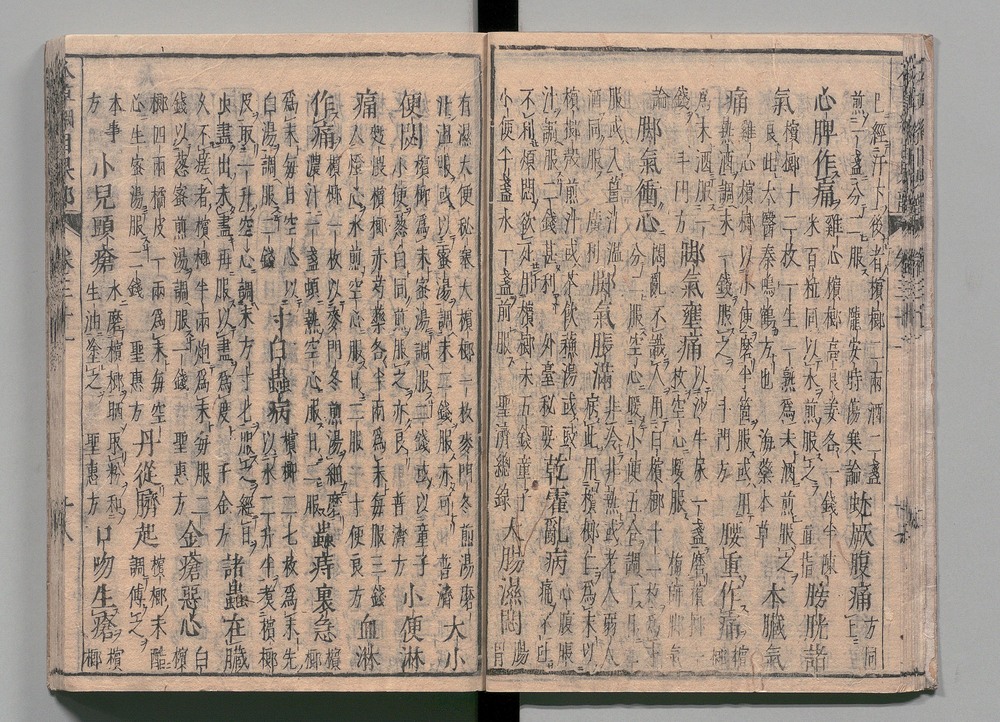 已經汗下後者檳榔二兩酒二盞
煎一盞分二服 龐安時傷寒論 蚘厥腹痛 方同上
心脾作痛 雞心檳榔高良薑各一錢半陳
米百粒同以水煎服之 直指 膀胱諸
氣 檳榔十二枚一生一熟爲末酒煎服之
良此太醫秦鳴鶴方也 海藥本草 本臟氣
痛 雞心檳榔以小便磨半箇服或用
熱酒調末一錢服之 斗門方 腰重作痛 檳榔
爲末酒服一
錢 斗門方 脚氣壅痛 以沙牛尿一盞磨檳榔
一枚空心暖服 梅師 脚氣
論 脚氣衝心 悶亂不識人用白檳榔十二枚爲末
分二服空心暖小便五合調下日二
服或入薑汁溫
酒同服 廣利 脚氣脹滿 非冷非熱或老人弱人
病此用檳榔仁爲末以
檳榔殼煎汁或茶飲蘇湯或豉
汁調服二錢甚利 外臺秘要 乾霍亂病 心腹脹
痛不吐
不利煩悶欲死用檳榔末五錢童子
小便半盞水一盞煎服 聖濟總錄 大腸濕閟 腸胃
有濕大便秘塞大檳榔一枚麥門冬煎湯磨
汁溫服或以蜜湯調末二錢服亦可 普濟 大小
便閟 檳榔爲末蜜湯調服二錢或以童子
小便葱白同煎服之亦良 普濟方 小便淋
痛 麪煨檳榔赤芍藥各半兩爲末每服三錢
入燈心水煎空心服日二服 十便良方 血淋
作痛 檳榔一枚以麥門冬煎湯細磨
濃汁一盞頓熱空心服日二服 蟲痔裏急 檳榔
爲末每日空心以
白湯調服二錢 寸白蟲病 檳榔二七枚爲末先
以水二升半煮檳榔
皮取一升空心調末方寸匕服之經日
虫盡出未盡再服以盡爲度 千金方 諸蟲在臟
久不瘥者檳榔半兩炮爲末每服二
錢以葱蜜煎湯調服一錢 聖惠方 金瘡惡心 白檳
榔四兩橘皮一兩爲末每空
心生蜜湯服二錢 聖惠方 丹從臍起 檳榔末醋
調傅之
本事
方 小兒頭瘡 水磨檳榔晒取粉和
生油塗之 聖惠方 口吻生瘡 檳榔